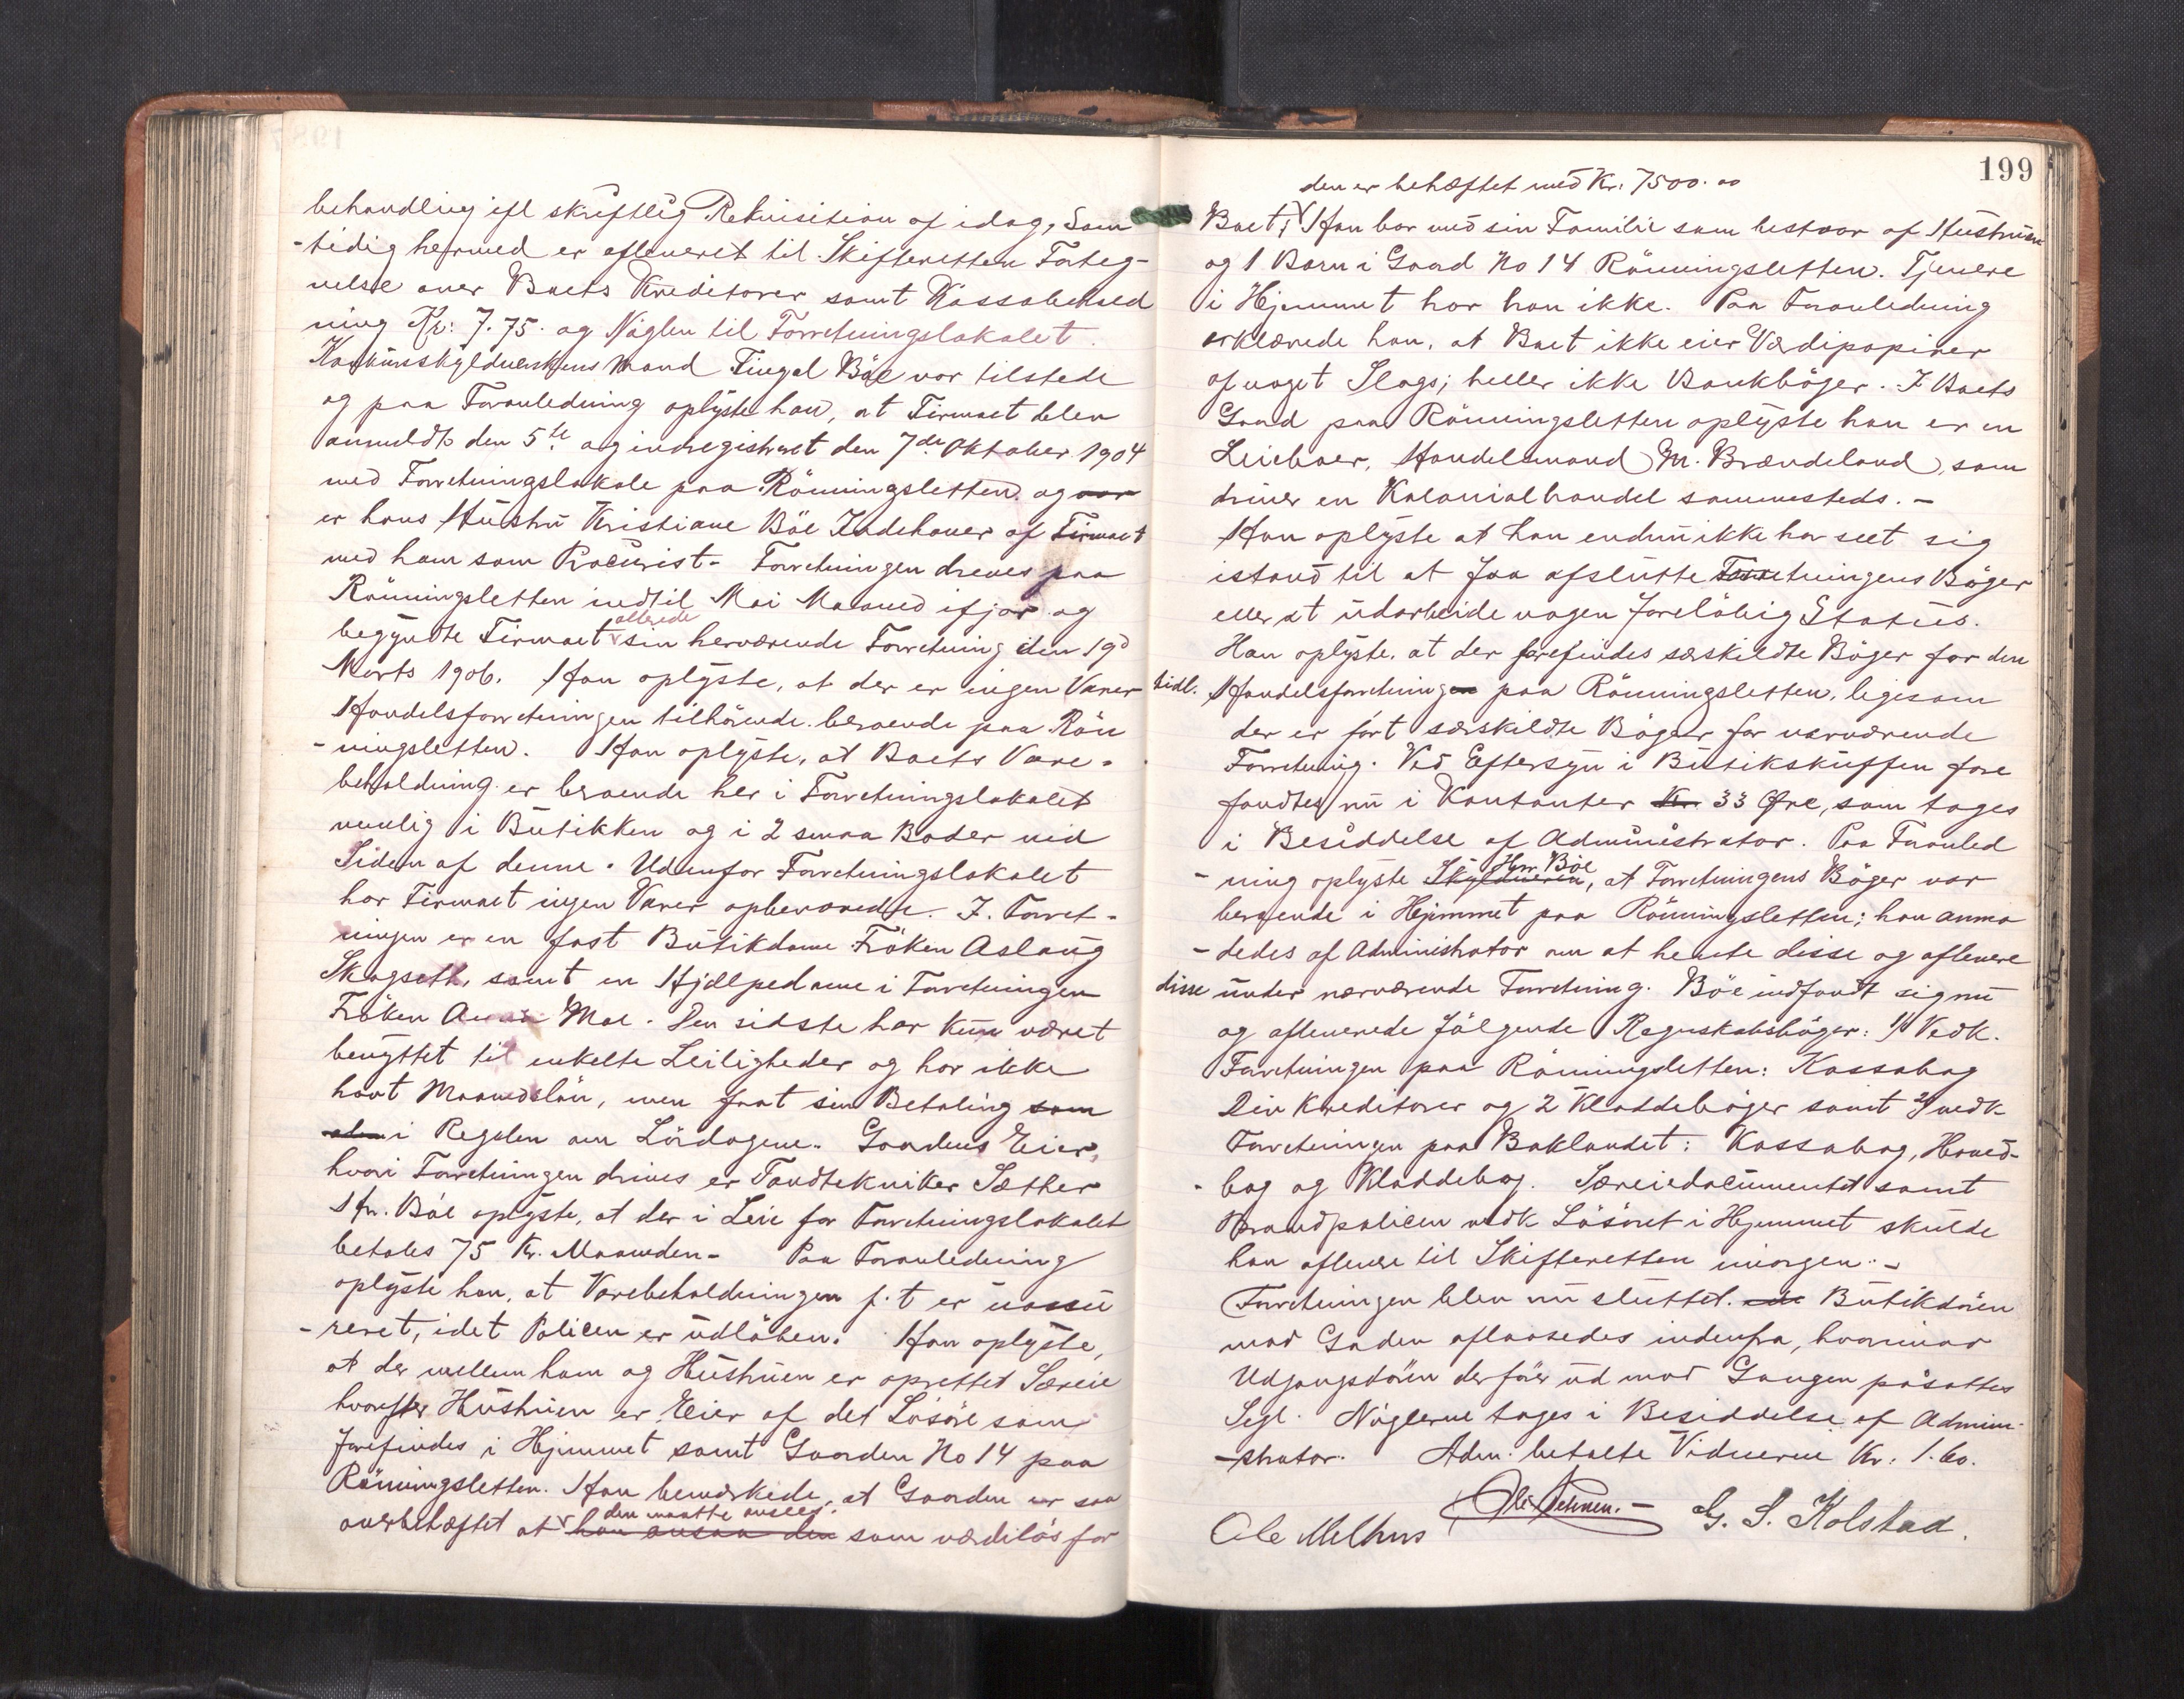 behandling ifl skriftlig Rekvisition af idag, Sam
-tidig hermed er afleveret til Skifteretten Forteg-
nelse over Boets Kreditorer samt Kassabehold
ning Kr: 7.75. og Nøglen til Forretningslokalet.
Konkursskyldnerskens Mand Fingal Böe var tilstede
og paa Foranledning oplyste han, at Firmaet blev
anmeldt den 5te og indregistreret den 7de Oktober 1904
med Forretningslokale paa Rönningsletten og var
er hans Hustru Kristiane Böe Indehaver af Firmaet
med ham som Procurist- Forretningen dreves paa
Rönningsletten indtil Mai Maaned ifjor og
allerede
begyndte Firmaet sin herværende Forretning den 19d
Marts 1906. Han oplyste, at der er ingen Varer
Handelsforretningen tilhörende beroende paa Rön
-ningsletten. Han oplyste, at Boets Vare-
beholdning er beroende her i Forretningslokalet
nemlig i Butikken og i 2 smaa Boder ved
Siden af denne. Udenfor Forretningslokalet
har Firmaet ingen Varer opbevarede. I Forret-
ningen er en fast Butikdame Fröken Aslaug
Skogseth, samt en Hjælpedame i Forretningen
Fröken Anna Moe. Den sidste har kun været
benyttet til enkelte Leiligheder og har ikke
havt Maanedslön, men faat sin Betaling som
i Regelen om Lördagene. Gaardens Eier,
hvori Forretningen drives er Tandtekniker Sæther
Hr. Böe oplyste, at der i Leie for Forretningslokalet
betales 75 Kr. Maaneden- Paa Foranledning
oplyste han, at Varebeholdningen f. t er uassu
-reret, idet Policen er udlöben. Han oplyste,
at der mellem ham og Hustruen er oprettet Særeie
hvorefter Hustruen er Eier af det Lösöre som
forefindes i Hjemmet samt Gaarden No 14 paa
Rönningsletten. Han bemærkede, at Gaarden er saa
den maatte ansees
overbehæftet at han ansaa den som værdilös for
199
den er behæftet med Kr. 7500.00
Boet, Han bor med sin Familie som bestaar af Hustruen
og 1 Barn i Gaard No 14 Rönningsletten. Tjenere
i Hjemmet har han ikke. Paa Foranledning
erklærede han, at Boet ikke eier Værdipapirer
af noget Slags; heller ikke Bankböger. I Boets
Gaard paa Rönningsletten oplyste han er en
Leieboer, Handelsmand M. Brændeland, som
driver en Kolonialhandel sammesteds.-
Han oplyste at han endnu ikke har seet sig
istand til at faa afslutte Forretningens Böger
eller at udarbeide nogen forelöbig Status.
Han oplyste, at der forefindes særskildte Böger for den
tidl. Handelsforretning paa Rönningsletten, ligesom
der er fört særskildte Böger for nærværende
Forretning. Ved Eftersyn i Butikskuffen fore
fandtes nu i Kontanter Kr. 33 Øre, som tages
i Besiddelse af Administrator. Paa Foranled
Herr Böe
-ning oplyste Skyldneren, at Forretningens Böger var
beroende i Hjemmet paa Rönningsletten; han anmo
-dedes af Administrator om at hente disse og aflevere
disse under nærværende Forretning. Böe indfandt sig nu
og afleverede fölgende Regnskabsböger: 1/ Vedk.
Forretningen paa Rönningsletten: Kassabog
Div Kreditorer og 2 Kladdeböger samt 2/ vedk
Forretningen paa Baklandet: Kassabog, Hoved-
-bog og Kladdebog. Særeiedocumentet samt
Brandpolicen vedk Lösöret i Hjemmet skulde
han aflevere til Skifteretten imorgen.-
Forretningen blev nu sluttet. Butikdören
mod Gaden aflaasedes indenfra, hvorimod
Udgangsdören der förer ud mod Gangen påsattes
Segl. Nöglerne tages i Besiddelse af Admini-
-strator. Adm. betalte Vidnerne Kr: 1.60.
Ole Melhus G. S. Kolstad.